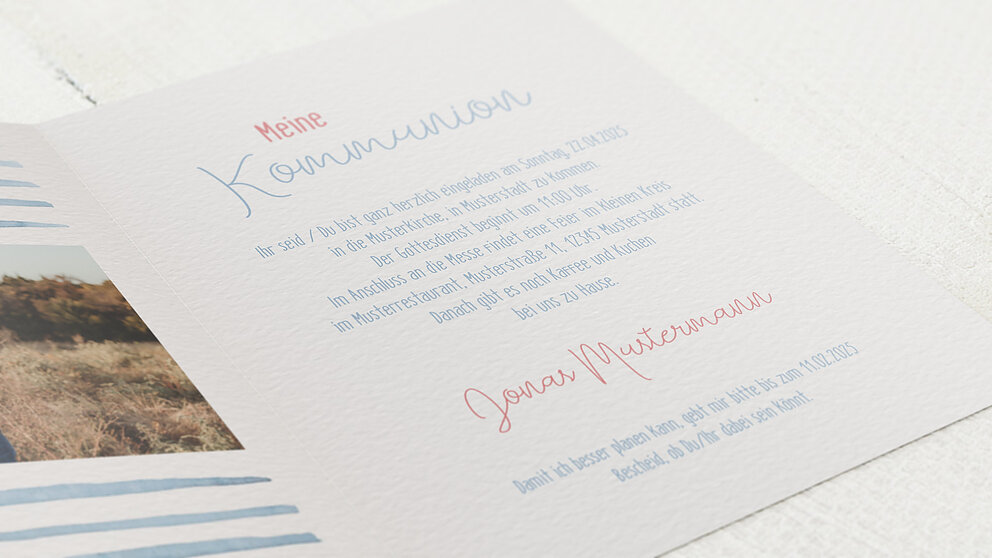 Meine
Kommunion
Ihr seid / Du bist ganz herzlich eingeladen am Sonntag, 22.04.2025
in die Musterkirche, in Musterstadt zu kommen.
Der Gottesdienst beginnt um 11:00 Uhr.
Im Anschluss an die Messe findet eine Feier im kleinen Kreis
im Musterrestaurant, Musterstraße 11, 12345 Musterstadt statt
Danach gibt es noch Kaffee und Kuchen
bei uns zu Hause.
Jonas Mustermann
Damit ich besser planen kann, gebt mir bitte bis zum 11.02.2025
Bescheid, ob Du/Ihr dabei sein könnt.